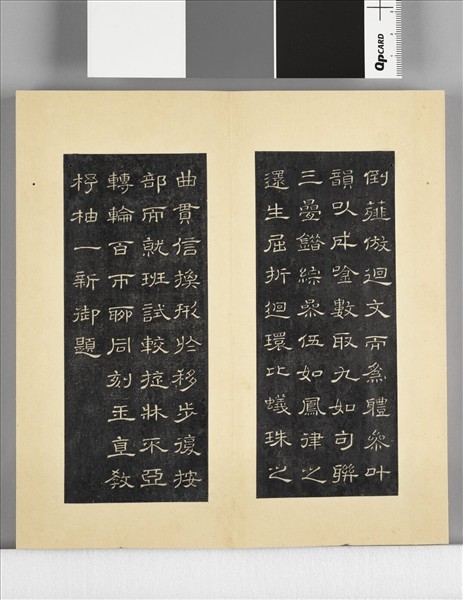 QpCARD
倒薤倣迴文而為體參叶
韻以成唫數取九如句聯
三疊錯綜參伍如鳳律之
還生屈折迴環比蟻珠之
曲貫信換形於移步復按
部而就班試較旋牀不亞
轉輪百帀聊同刻玉直教
杼柚一新御題